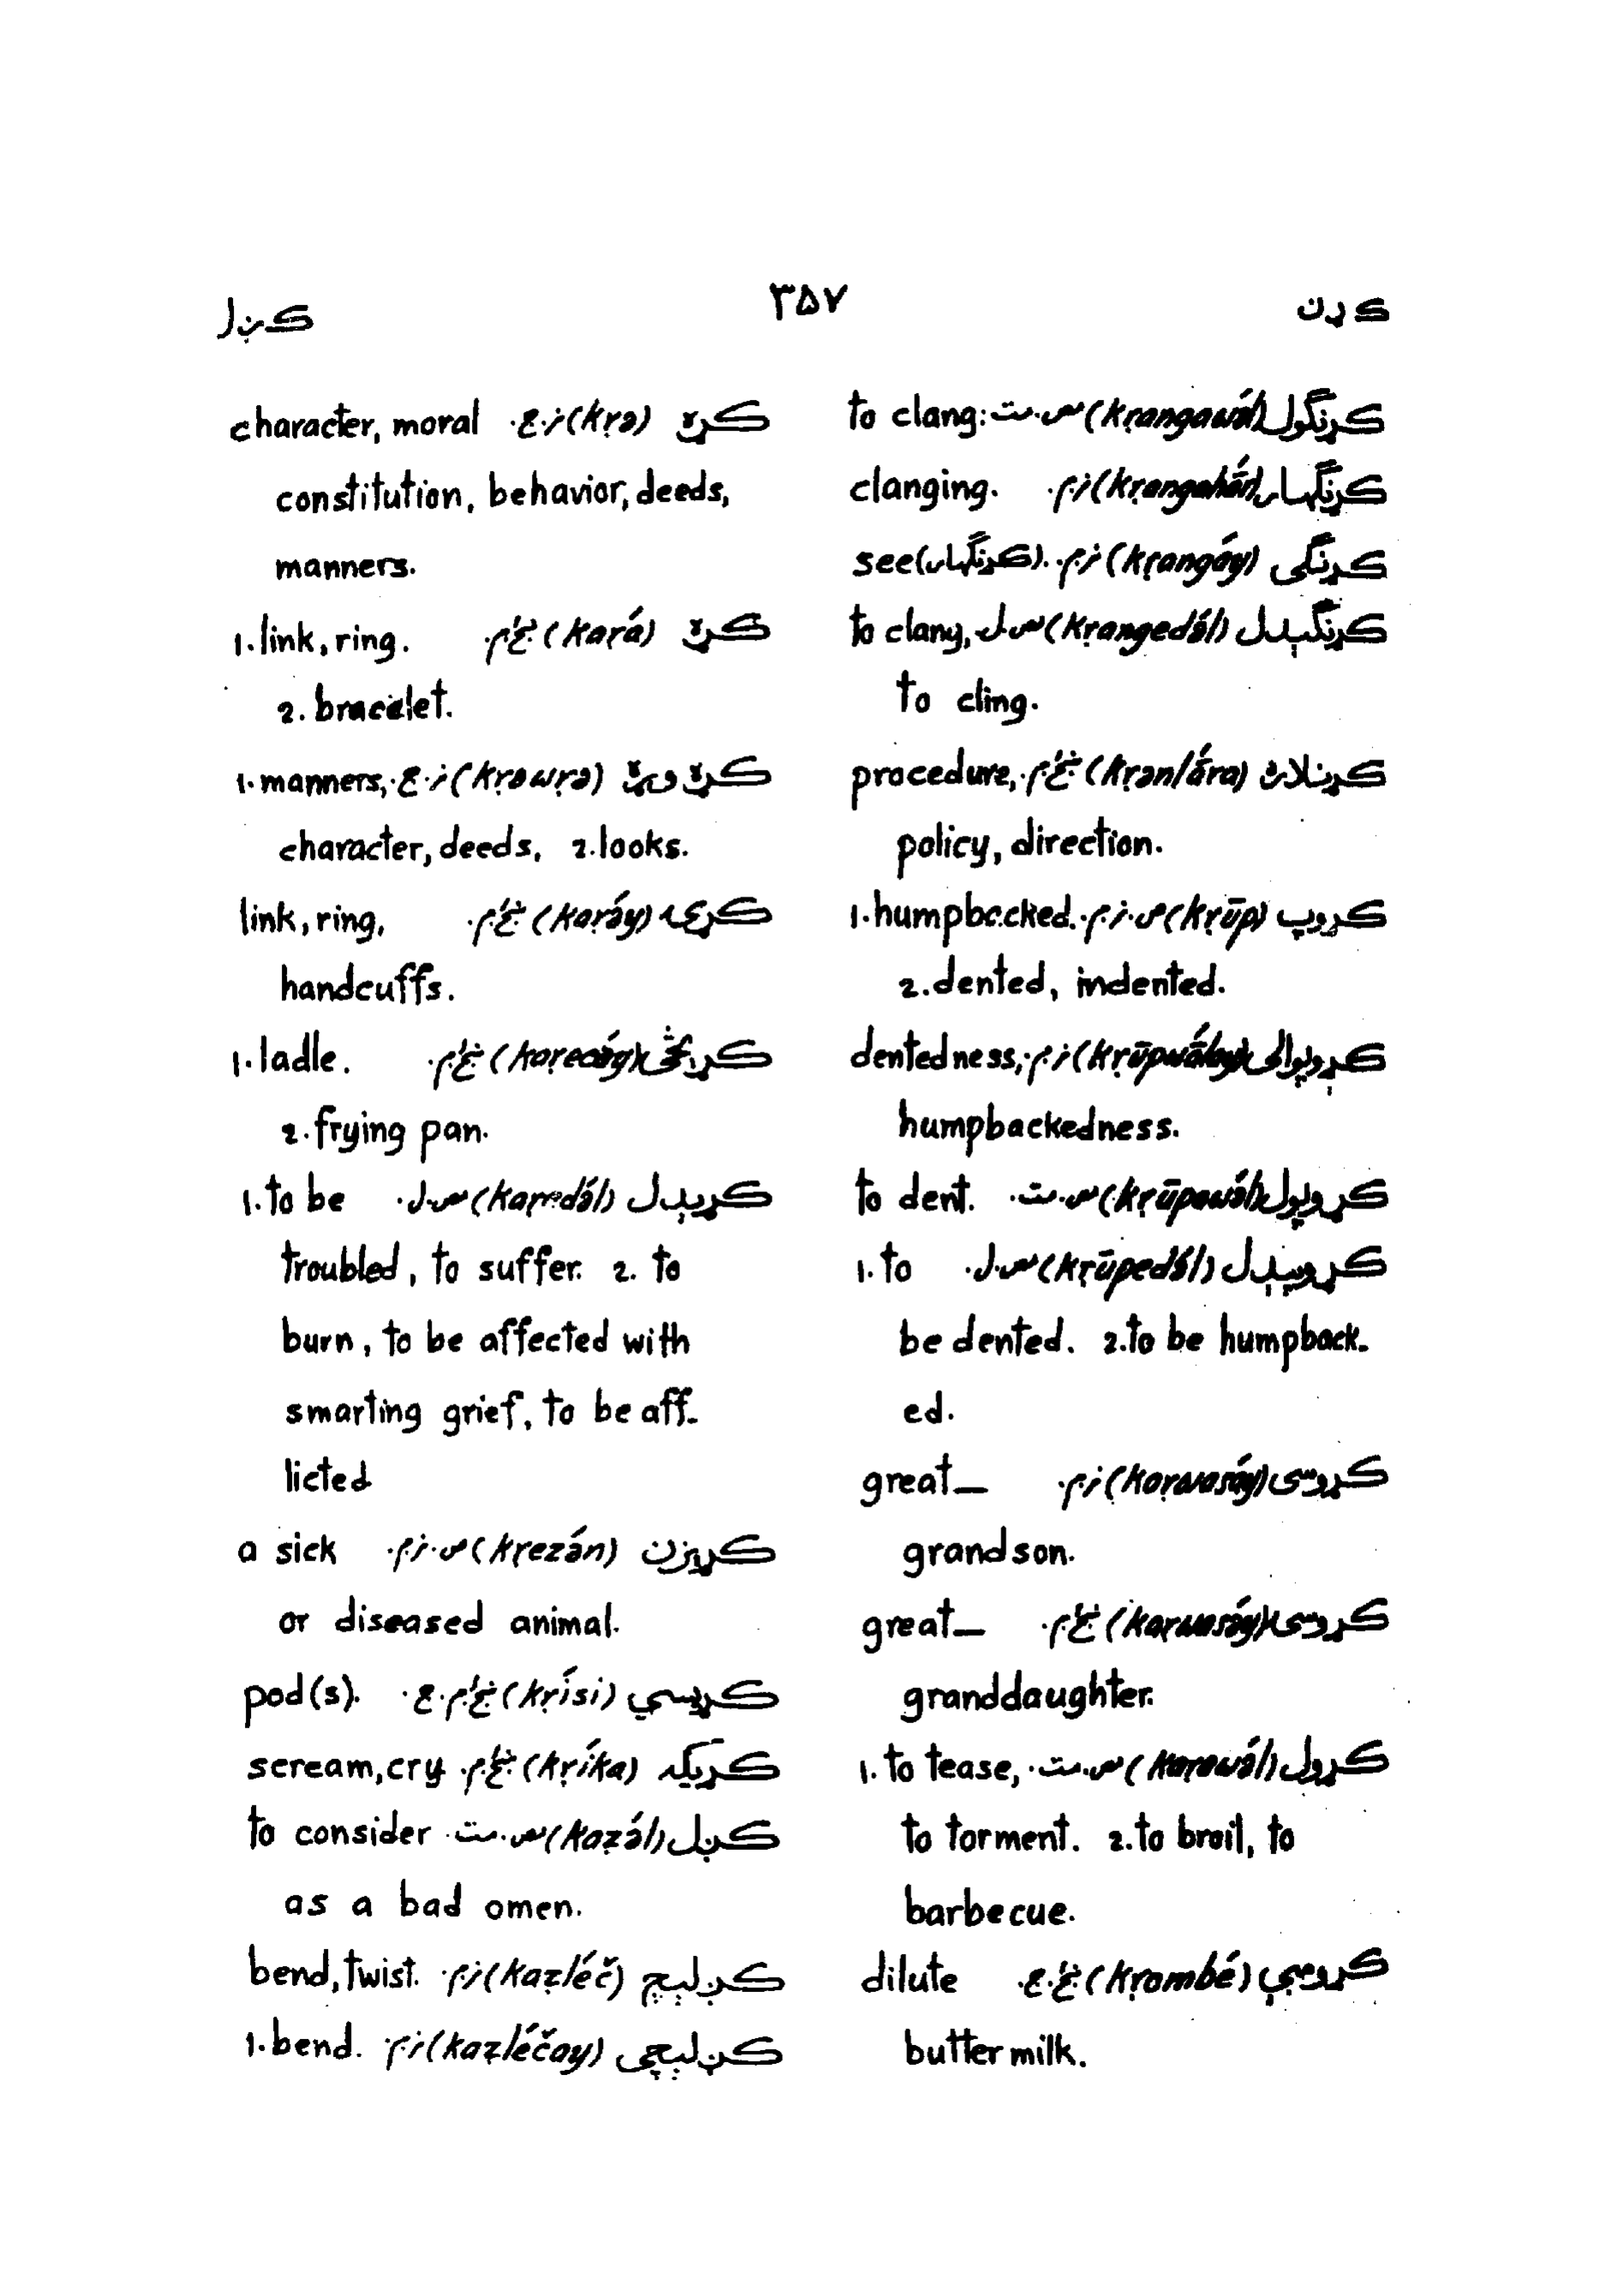 کړن ۳۵۷ کږل
کړنګول (kṛangawə́l) س.مت. to clang:
کړنګهار (kṛangahā́r) ن.م. clanging.
کړنګی (kṛangáy) ن.م. see (کړنګهار).
کړنګېدل (kṛangedə́l) س.ل. to clang,
to cling.
کړنلاره (kṛənlā́ra) ښځ.م. procedure,
policy, direction.
کړوپ (kṛūp) ص.ن.م. 1.humpbacked.
2.dented, indented.
کړوپوالی (kṛūpwā́lay) ن.م. dentedness,
humpbackedness.
کړوپول (kṛūpawə́l) س.مت. to dent.
کړوپېدل (kṛūpedə́l) س.ل. 1.to
be dented. 2.to be humpback-
ed.
کړوسی (kaṛwasáy) ن.م. great-
grandson.
کړوسۍ (kaṛwasə́y) ښځ.م. great-
granddaughter.
کړول (kaṛawə́l) س.مت. 1.to tease,
to torment. 2.to broil, to
barbecue.
کړومبې (kṛombé) ښځ.ع. dilute
buttermilk.
کړۀ (kṛə) ن.ع. character, moral
constitution, behavior, deeds,
manners.
کړۀ (kaṛá) ښځ.م. 1.link, ring.
2.bracelet.
کړۀ وړۀ (kṛəwṛə) ن.ع. 1.manners,
character, deeds, 2.looks.
کړۍ (kaṛə́y) ښځ.م. link, ring,
handcuffs.
(kaṛecə́y) ښځ.م. 1.ladle.
2.frying pan.
کړېدل (kaṛedə́l) س.ل. 1.to be
troubled, to suffer. 2. to
burn, to be affected with
smarting grief, to be aff-
licted
کړېزن (kṛezə́n) ص.ن.م. a sick
or diseased animal.
کړيسي (kṛísi) ښځ.م.ع. pod(s).
کړيکه (kṛíka) ښځ.م. scream, cry
کږل (kaẓə́l) س.مت. to consider
as a bad omen.
کږلېچ (kaẓléč) ن.م. bend, twist.
کږلېچی (kaẓléčay) ن.م. 1.bend.